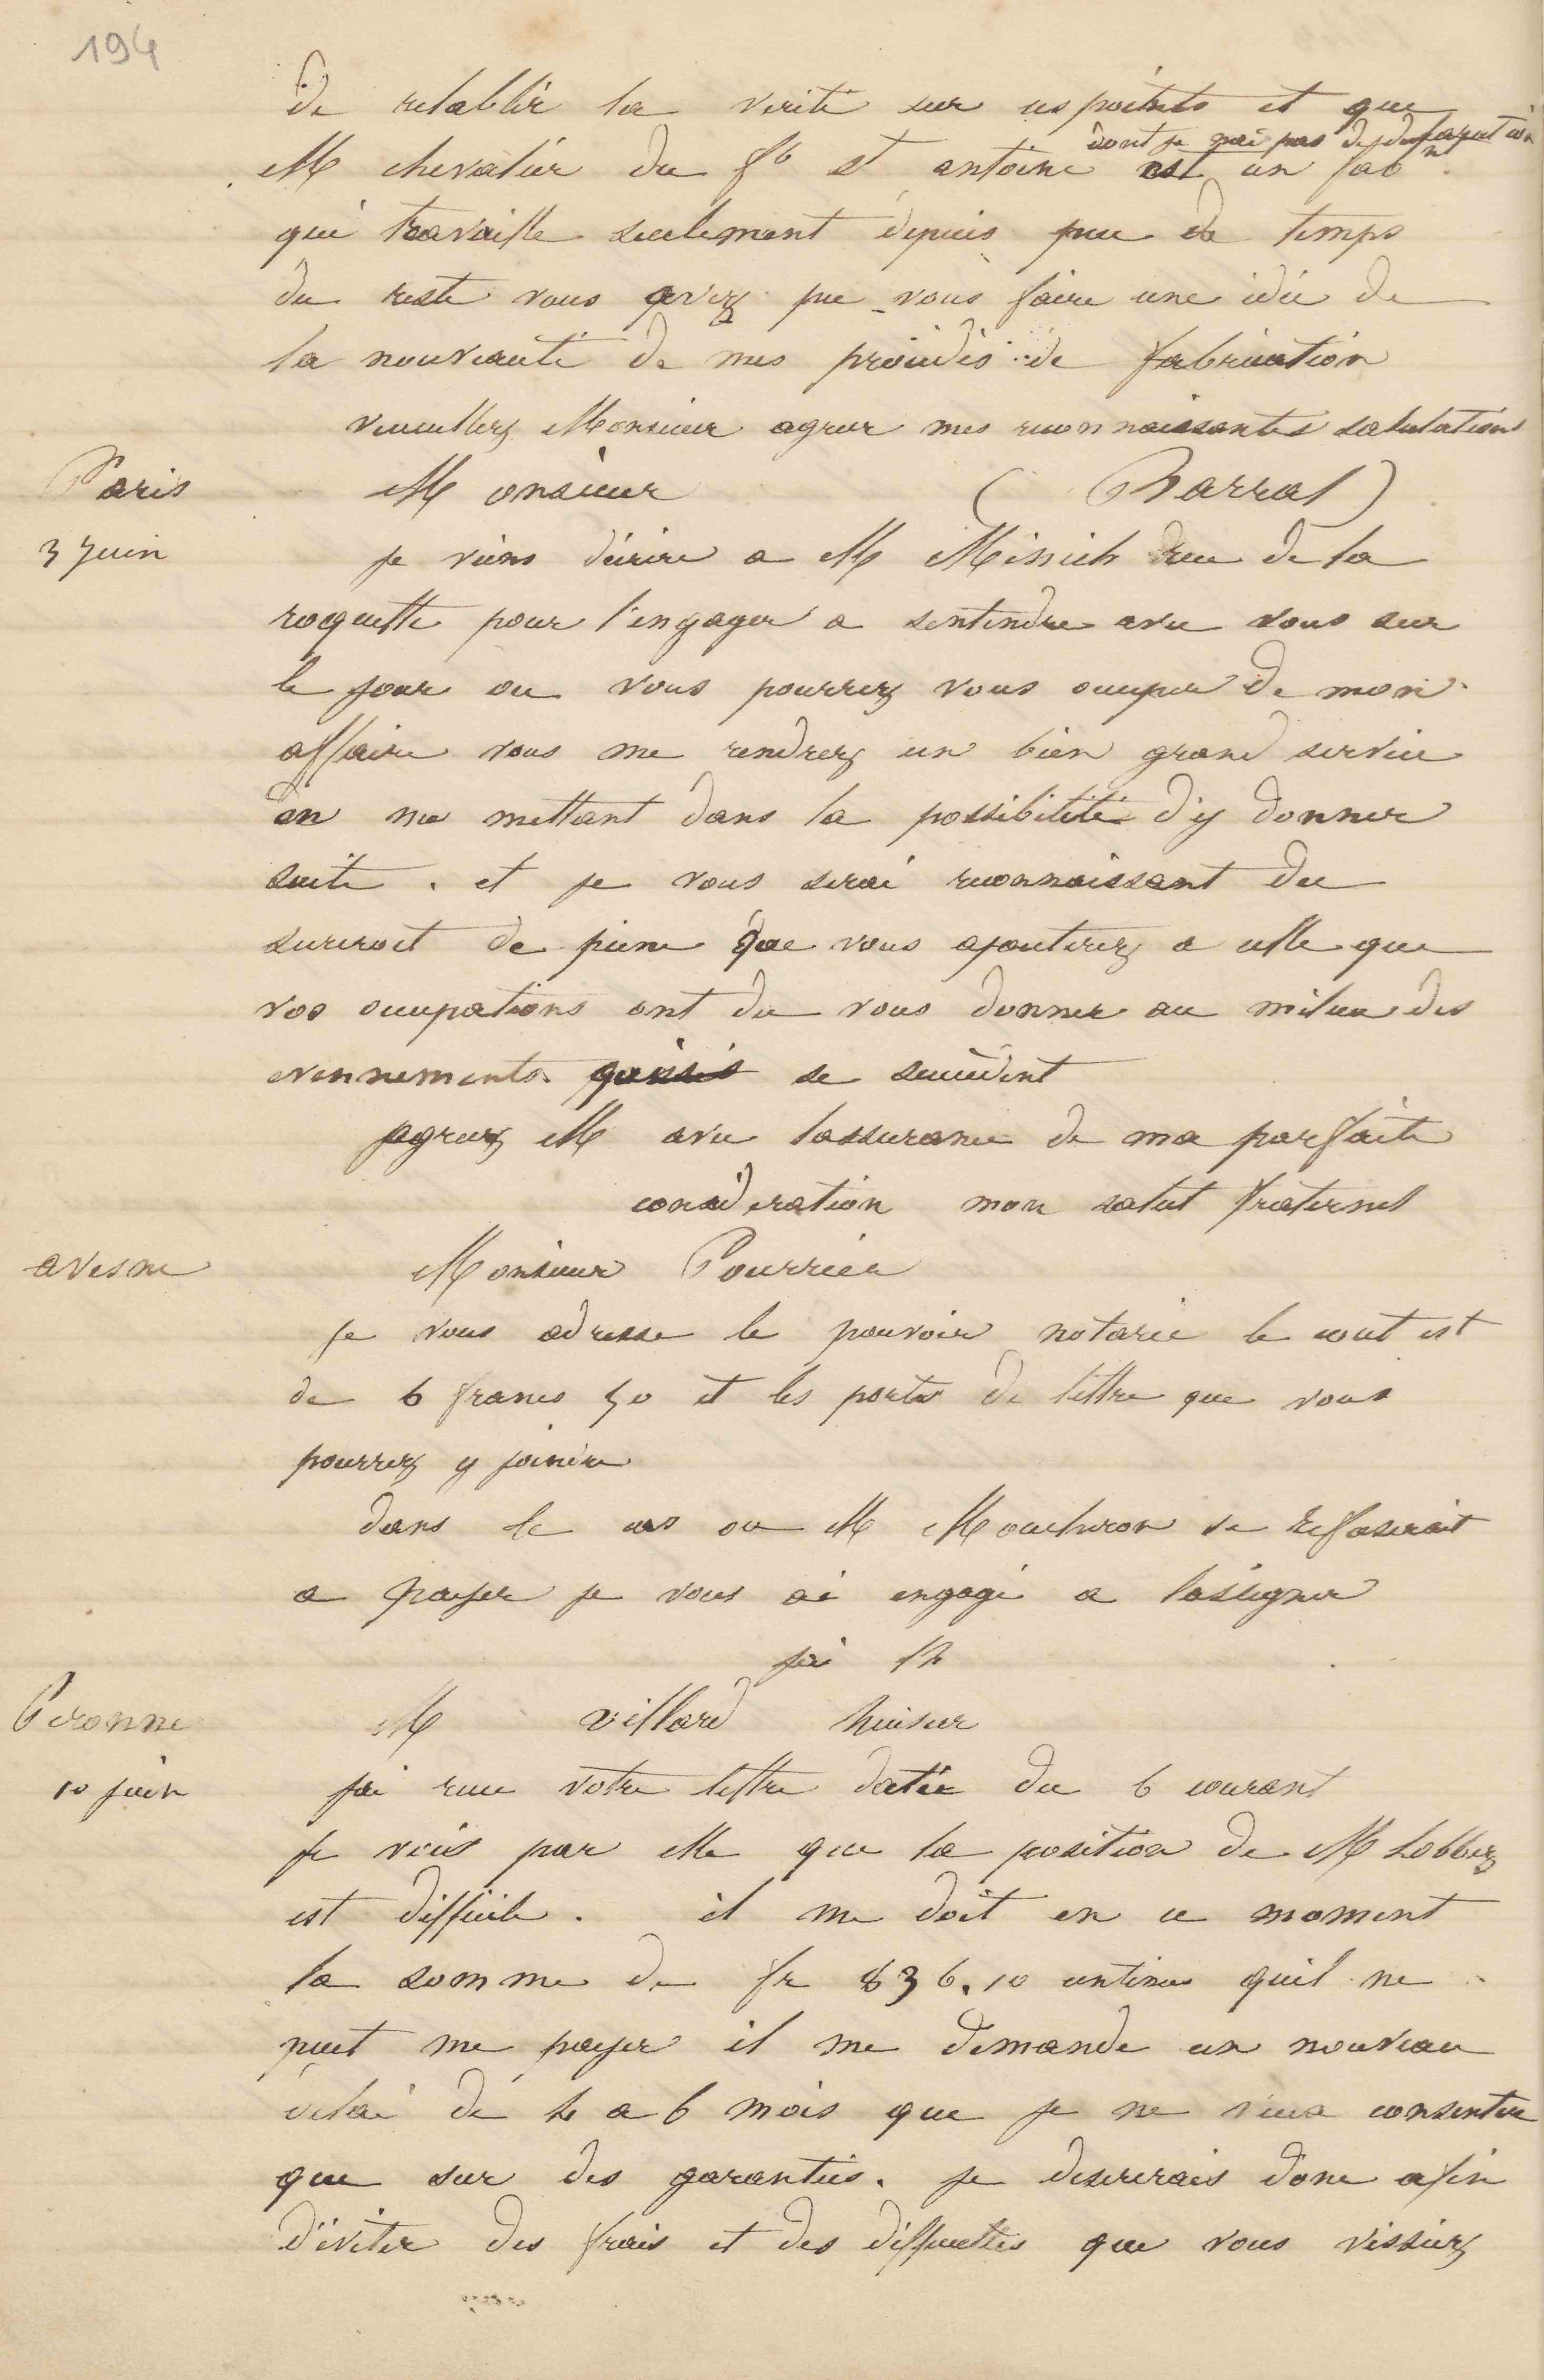 194
de retablir la verité sur ces points et que
dont je n'ai pas de
M chevalier du fb st antoine est un fabt
qui travaille seulement depuis peu de temps
du reste vous avez pu vous faire une idée de
la nouveauté de mes procédés de fabrication
veuillez Monsieur agreer mes reconnaissantes salutations
Paris
Monsieur (Barral)
3 Juin
je viens d'écrire a M Missich rue de la
roquette pour l'engager a sentendre avec vous sur
le jour ou vous pourrez vous occuper de mon
affaire vous me rendrez un bien grand service
en me mettant dans la possibilité d'y donner
suite . et je vous serai reconnaissant du
surcroit de piene que vous ajouterez a celle que
vos occupations ont du vous donner au milieu des
evennements se succèdent
agreez M avec lassurance de ma parfaite
consideration mon salut fraternel
avesne
Monsieur Pourrier
je vous adresse le pouvoir notarié le cout est
de 6 francs 50 et les ports de lettre que vous
pourrez y joindre
dans le cas ou M Moucheron se refuserait
a payer je vous ai engagé a lassigner
jai lh
Peronne
M villard huisier
10 juin
jai recu votre lettre datée du 6 courant
je vois par elle que la position de M Lobbez
est difficile . il me doit en ce moment
la somme de fr 836.10 centimes quil ne
peut me payer il me demande un nouveau
delai de 4 a 6 mois que je ne veux consentir
que sur des garanties. je desirerais donc afin
d'éviter des frais et des difficultés que vous vissiez